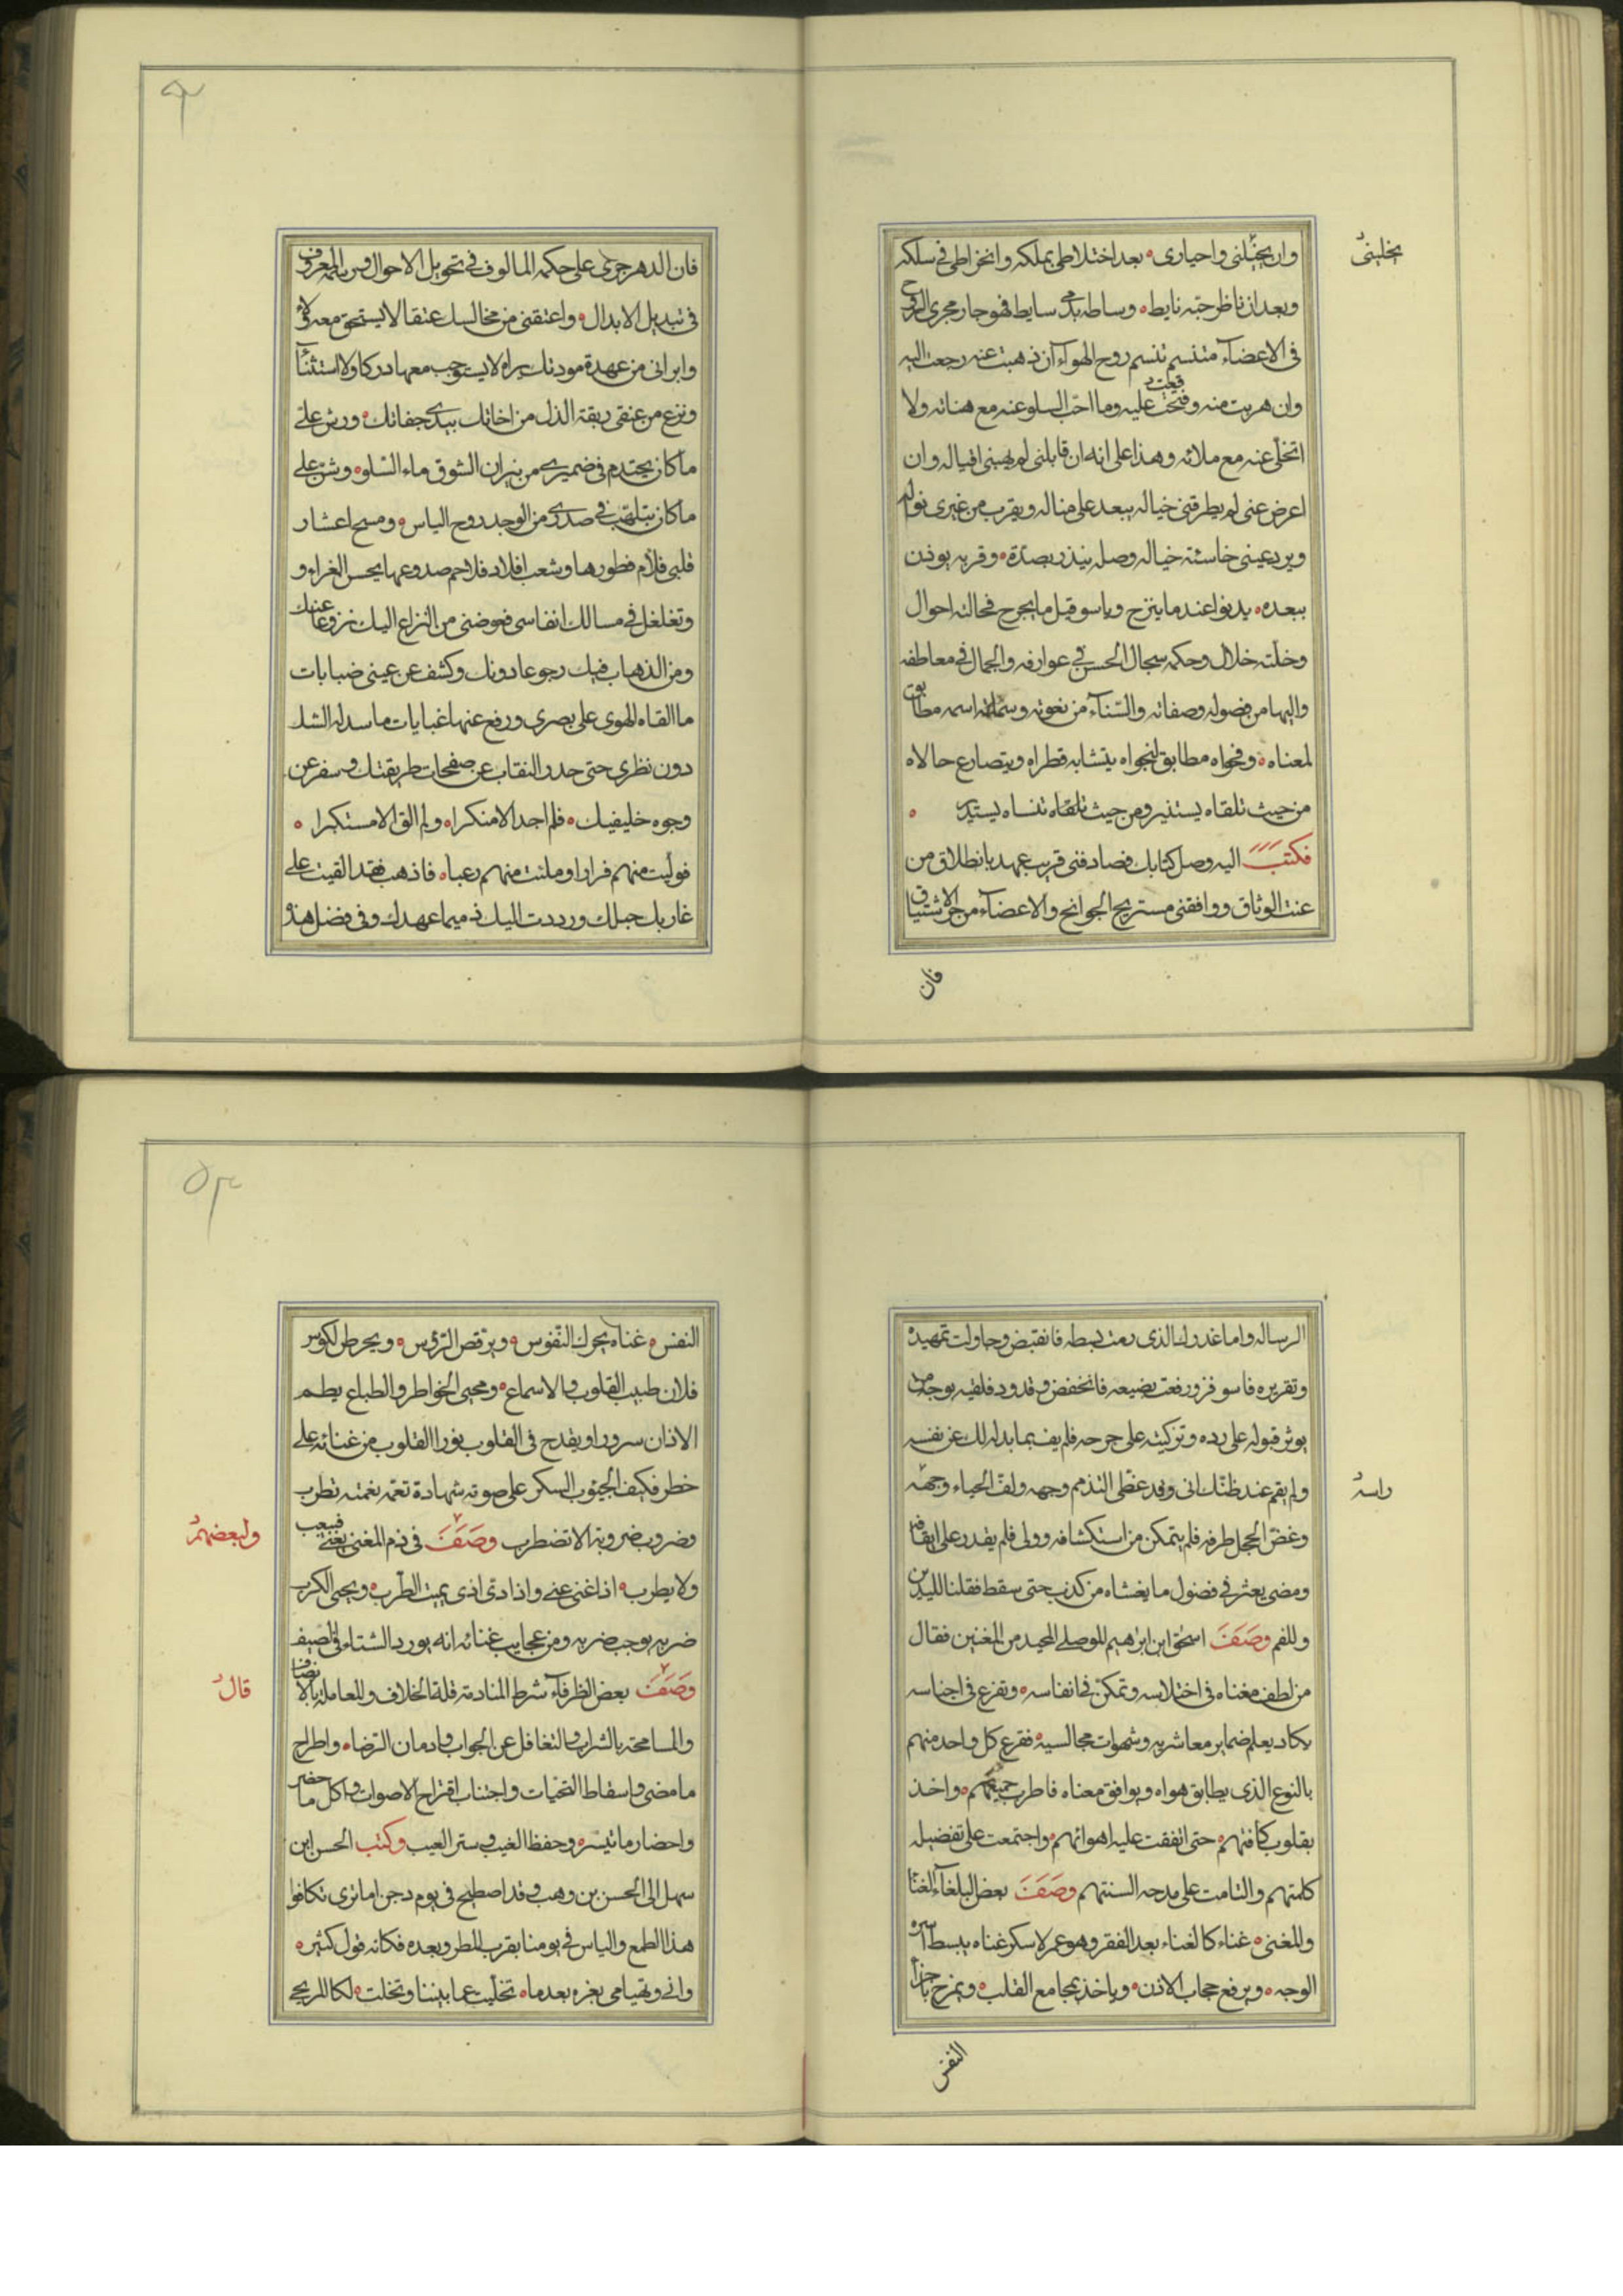 يخلبنى
وان يخبلنى واحيارى ه بعد اختلاطى بملكه وانخراطى فى سلكه
وبعد ان ناظر حبّه نايط ه وساطه بدمى سايط فهو جار مجرى الروح
فى الاعضآء متنسم تنسم روح الهواء ان ذهبت عنه رجعت اليه
وان هربت منه وقعت عليه وما احبّ السلو عنه مع هناته ولا
اتخلّى عنه مع ملائه وهذا على انه ان قابلنى لم يهبنى اقباله وان
اعرض عنى لم يطرقنى خياله يبعد على مناله ويقرب من غيرى نواله
ويرد عينى خاسئة خياله وصله ينذر بصدّه ه وقربه يوذن
ببعده ه يدنوا عند ما ينزح وياسو قبل ما يجرح فحالته احوال
وخلّته خلال وحكمه سجال الحسن فى عوارفه والجمال فى معاطفه
والبها من فضوله وصفاته والسّنآء من نعوته وسماته اسمه مطابق
لمعناه ه وفحواه مطابق لنجواه يتشابه قطراه ويتصارع حالاه
من حيث تلقاه يستنير ومن حيث تنساه يستدير ه
فكتبت اليه وصل كتابك فصادفنى قريب عهد بانطلاق من
عنت الوثاق ووافقنى مستريح الجوانح والاعضآء من جوى الاشتياق
فان
فان الدهر جرى على حكمه المالوف فى تحويل الاحوال ورسمه المعروف
فى تبديل الابدال ه واعتقنى من مخالبك عتقا لا يستحق معه ولاء
وابرانى من عهدة مودتك براة لا يستوجب معها دركا ولا استثنآء
ونزع من عنقى ربقة الذل من اخائك بيدى جفائك ه ورش على
ما كان يحتدم فى ضميرى من نيران الشوق ماء السّلو ه وشن على
ما كان يتلهب فى صدرى من الوجد روح الياس ه ومسح اعشار
قلبى فلأم فطورها وشعب افلاذ فلاحم صدوعها بحسن العزاء و
وتغلغل فى مسالك انفاسى فعوضنى من النزاع اليك نزوعا عنك
ومن الذهاب فيك رجوعا دونك وكشف عن عينى ضبابات
ما القاه الهوى على بصرى ورفع عنها غيابات ما سدله الشك
دون نظرى حتى حدر النقاب عن صفحات طريقتك وسفر عن
وجوه خليفيك ه فلم اجد الا منكرا ه ولم الق الا مستكبرا ه
فوليت منهم فرارا وملئت منهم رعبا ه فاذهب فقد القيت على
غاربك حبلك ورددت اليك ذميما عهدك وفى فضل هذه
الرساله واما عذرك الذى رمت بسطه فانقبض وحاولت تمهيده
وتقريره فاسوفز ورفعت بضيعه فانخفض وقد ورد فلقيه بوجه من
يوثر قبوله على رده وتزكيته على جرحه فلم يف بما بذله لك عن نفسه
ولم يقم عند ظنّك انى وقد غطّى التذمم وجهه ولفّ الحياء وجهه
راسه
وغضّ الخجل طرفه فلم يتمكن من استكشافه وولى فلم يقدر على ايقافه
ومضى يعثر فى فضول ما يغشاه من كذب حتى سقط فقلنا لليدين
وللفم وصف اسحق ابن ابراهيم الموصلى المجيد من المغنين فقال
من لطف مغناه فى اختلاسه وتمكن فى انفاسه ه وتفرع فى اجناسه
يكاد يعلم ضماير معاشريه وشهوات مجالسيه ه فقرع كل واحد منهم
بالنوع الذى يطابق هواه ويوافق معناه فاطرب جميعهم ه واخذ
بقلوب كافتهم ه حتى اتفقت عليه اهوائهم ه واجتمعت على تفضيله
كلمتهم والتامت على مدحه السنتهم وصف بعض البلغآء الغنا
والمغنى ه غناء كالغناء بعد الفقر وهو عمر لا سكر غناه يبسط اسره
الوجه ه ويرفع حجاب الاذن ه وياخذ بمجامع القلب ه ويمزج باجزآء
النفس
النفس ه غناه يحرك النّفوس ه ويرقص الرّؤس ه ويحرض لكؤس
فلان طبيب القلوب والاسماع ه ومحيى الخواطر والطباع يطعم
الاذان سرورا ويقدح فى القلوب نورا القلوب من غنائه على
خطر فكيف الجيوب السكر على صوته شهادة نغمه نغمته تطرب
وضروب ضروبه الا تضطرب وصف فى ذم المغنى يغنى فيتعب
ولبعضهم
ولا يطرب ه اذا غنى عنى واذا دنى اذى يميت الطّرب ه ويحيى الكرب
ضربه يوجب ضربه ومن عجايب غنائه انه يورد الشتاء فى الصيف
وصف بعض الظرفآء شرط المنادمة قلة الخلاف والمعامله بالانصاف
قال
والمسامحة بالشراب والتغافل عن الجواب وادمان الرّضا ه واطراح
ما مضى واسقاط التحيّات واجتناب اقتراح الاصوات واكل ما حضر
واحضار ما تيسّر ه وحفظ الغيب وستر العيب وكتب الحسن ابن
سهل الى الحسن بن وهب وقد اصطبح فى يوم دجن اما ترى تكافوا
هذا الطمع والياس فى يومنا بقرب المطر وبعده فكانه قول كثير ه
وانى وتهيامى بعزه بعد ما ه تخليت عما بيننا وتخلت ه لكا المرتجى